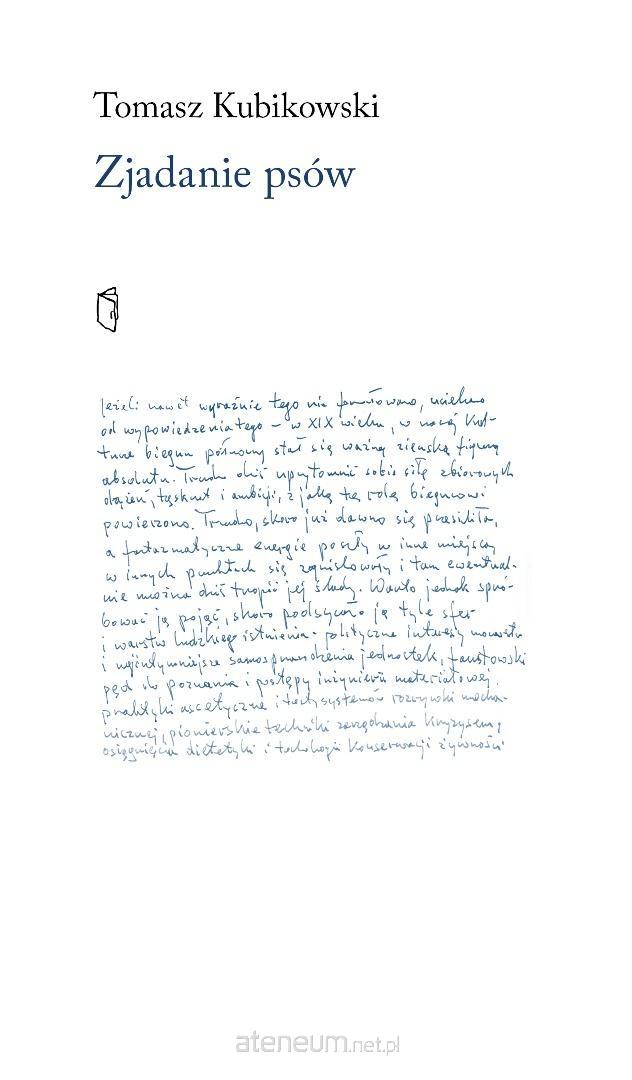 Tomasz Kubikowski
Zjadanie psów
Jeżeli nawet wyraźnie tego nie formułowano, uciekano
od wypowiedzenia tego – w XIX wieku, w naszej kul-
turze biegun północny stał się ważną ziemską figurą
absolutu. Trudno dziś uprzytomnić sobie siłę zbiorowych
dążeń, tęsknot i ambicji, z jaką tę rolę biegunowi
powierzono. Trudno, skoro już dawno się przesiliła,
a fantazmatyczne energie poszły w inne miejsca,
w innych punktach się zogniskowały i tam ewentual-
nie można dziś tropić jej ślady. Warto jednak spró-
bować ją pojąć, skoro podsycało ją tyle sfer
i warstw ludzkiego istnienia: polityczne interesy mocarstw
i najintymniejsze samosprawdzenia jednostek, faustowski
pęd do poznania i postępy inżynierii materiałowej,
praktyki ascetyczne i rozrywki mecha-
nicznej, pionierskie techniki zarządzania kryzysem,
osiągnięcia dietetyki i technologii konserwacji żywności
ateneum.net.pl